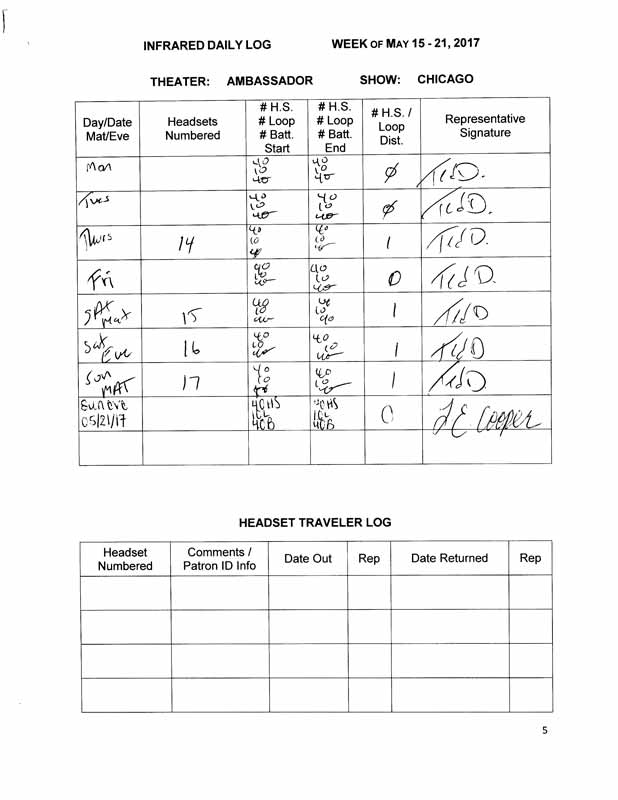 INFRARED DAILY LOG WEEK OF MAY 15 - 21, 2017
THEATER: AMBASSADOR SHOW: CHICAGO
Day/Date
Mat/Eve
Headsets
Numbered
# H.S.
# Loop
# Batt.
Start
# H.S.
# Loop
# Batt.
End
# H.S. /
Loop
Dist.
Representative
Signature
Mon
40
10
40
40
10
40
0
Tues
40
10
40
40
10
40
0
Thurs
14
40
10
40
40
10
40
1
Fri
40
10
40
40
10
40
0
SAT
Mat
15
40
10
40
40
10
40
1
Sat
Eve
16
40
10
40
40
10
40
1
Sun
MAT
17
40
10
40
10
40
1
Sun eve
05/21/17
40HS
10L
40B
40HS
10L
40B
0
J E Cooper
HEADSET TRAVELER LOG
Headset
Numbered
Comments /
Patron ID Info
Date Out
Rep
Date Returned
Rep
5